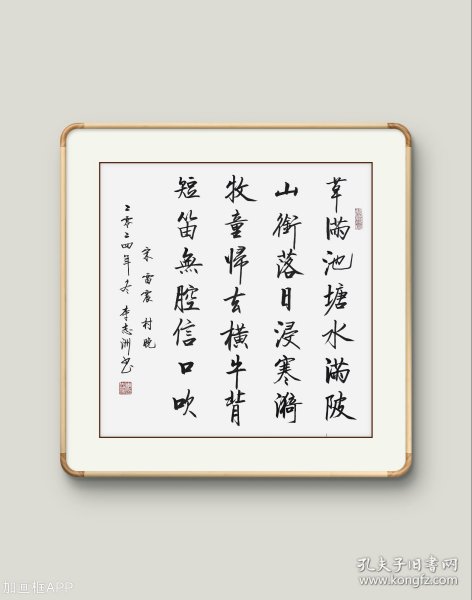 草满池塘水满陂
山衔落日浸寒漪
牧童歸去横牛背
短笛無腔信口吹
宋 雷震 村晚
二零二四年冬 李志洲书
孔夫子旧书网
www.kongfz.com
加画框APP